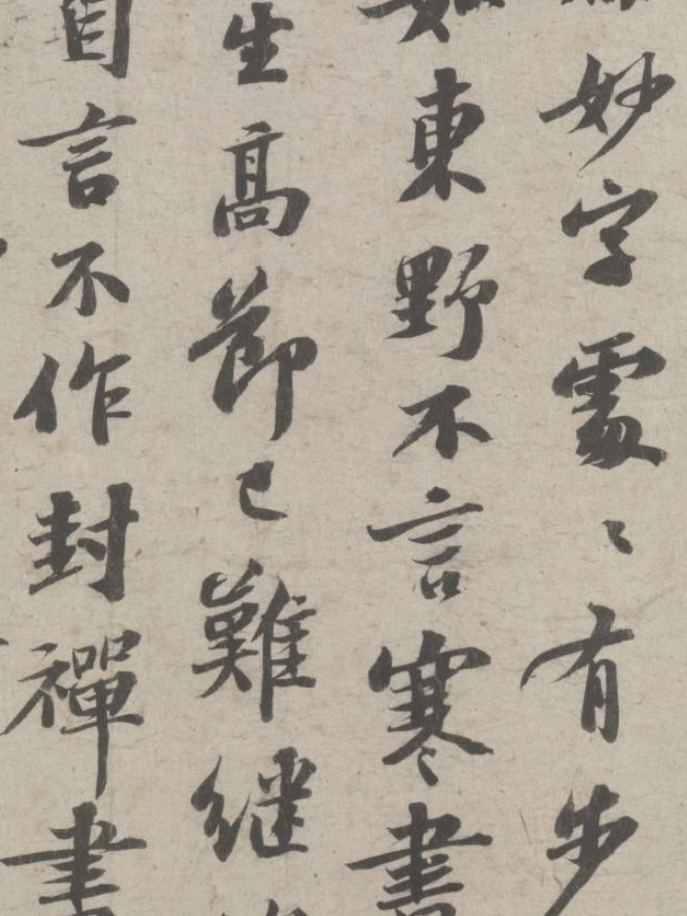 妙字處〻有步
如東野不言寒書
生高節已難继
自言不作封禪書